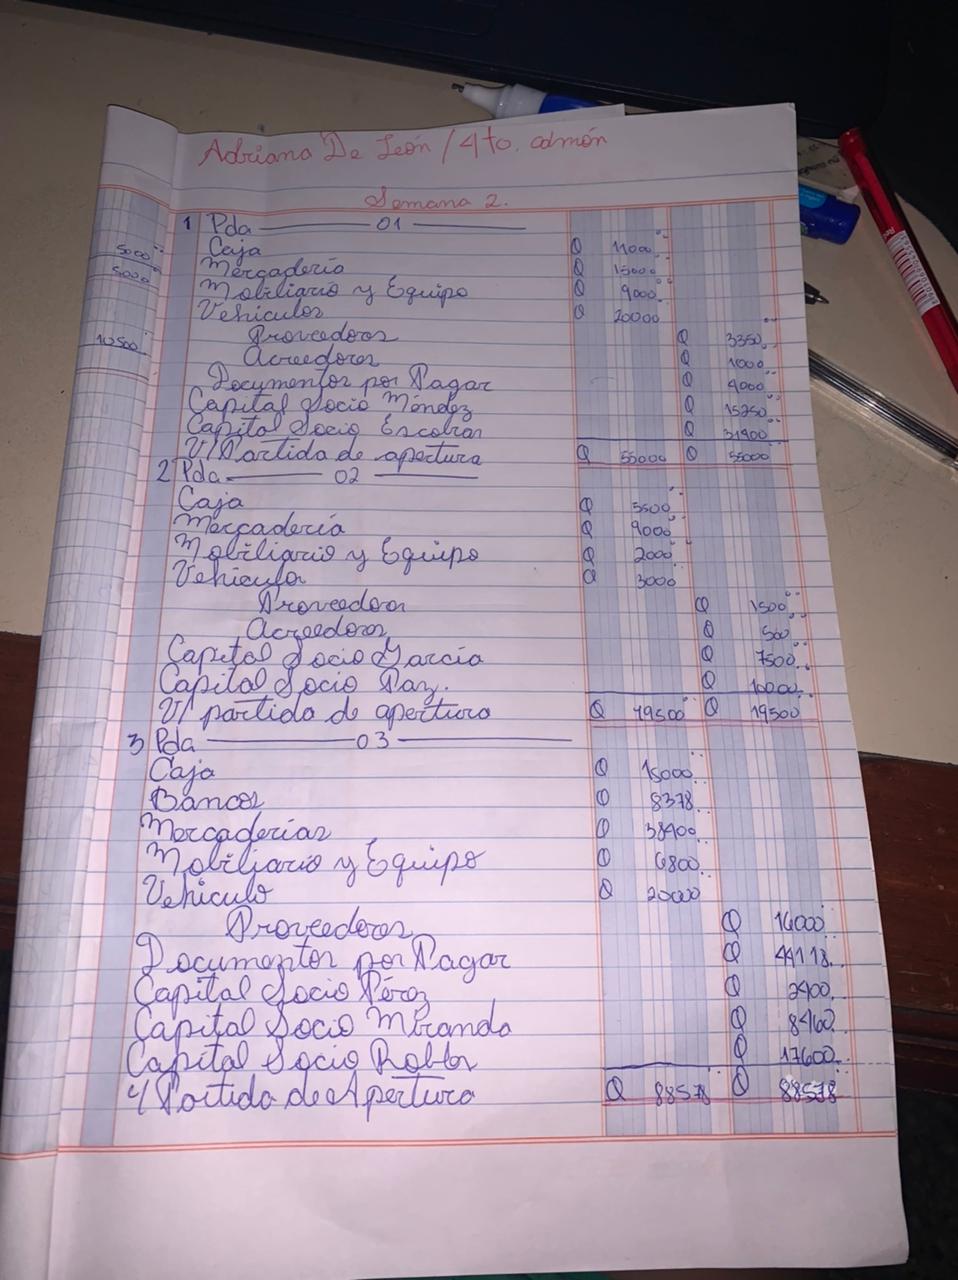 Adriana De León / 4to. admón
Semana 2.
5000
5000
10500
1 Pda 01
Caja Q 11000
Mercadería Q 15000
Mobiliario y Equipo Q 9000
Vehiculos Q 20000
Proveedores Q 3350
Acreedores Q 1000
Documentos por Pagar Q 4000
Capital Socio Méndez Q 15250
Capital Socio Escobar Q 31400
V/ Partida de apertura Q 55000 Q 55000
2 Pda 02
Caja Q 5500
Mercadería Q 9000
Mobiliario y Equipo Q 2000
Vehiculos Q 3000
Proveedores Q 1500
Acreedores Q 500
Capital Socio García Q 7500
Capital Socio Paz. Q 10000
V/ partida de apertura Q 19500 Q 19500
3 Pda 03
Caja Q 15000
Bancos Q 8378
Mercaderías Q 38400
Mobiliario y Equipo Q 6800
Vehiculo Q 20000
Proveedores Q 16000
Documentos por Pagar Q 44118
Capital Socio Pérez Q 2400
Capital Socio Miranda Q 8460
Capital Socio Robles Q 17600
V/ Partida de Apertura Q 88578 Q 88578